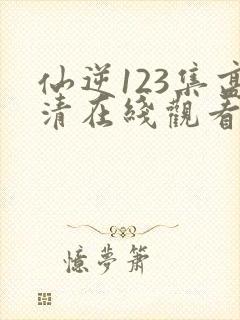 仙逆123集高
清在綫觀看
憶夢簫